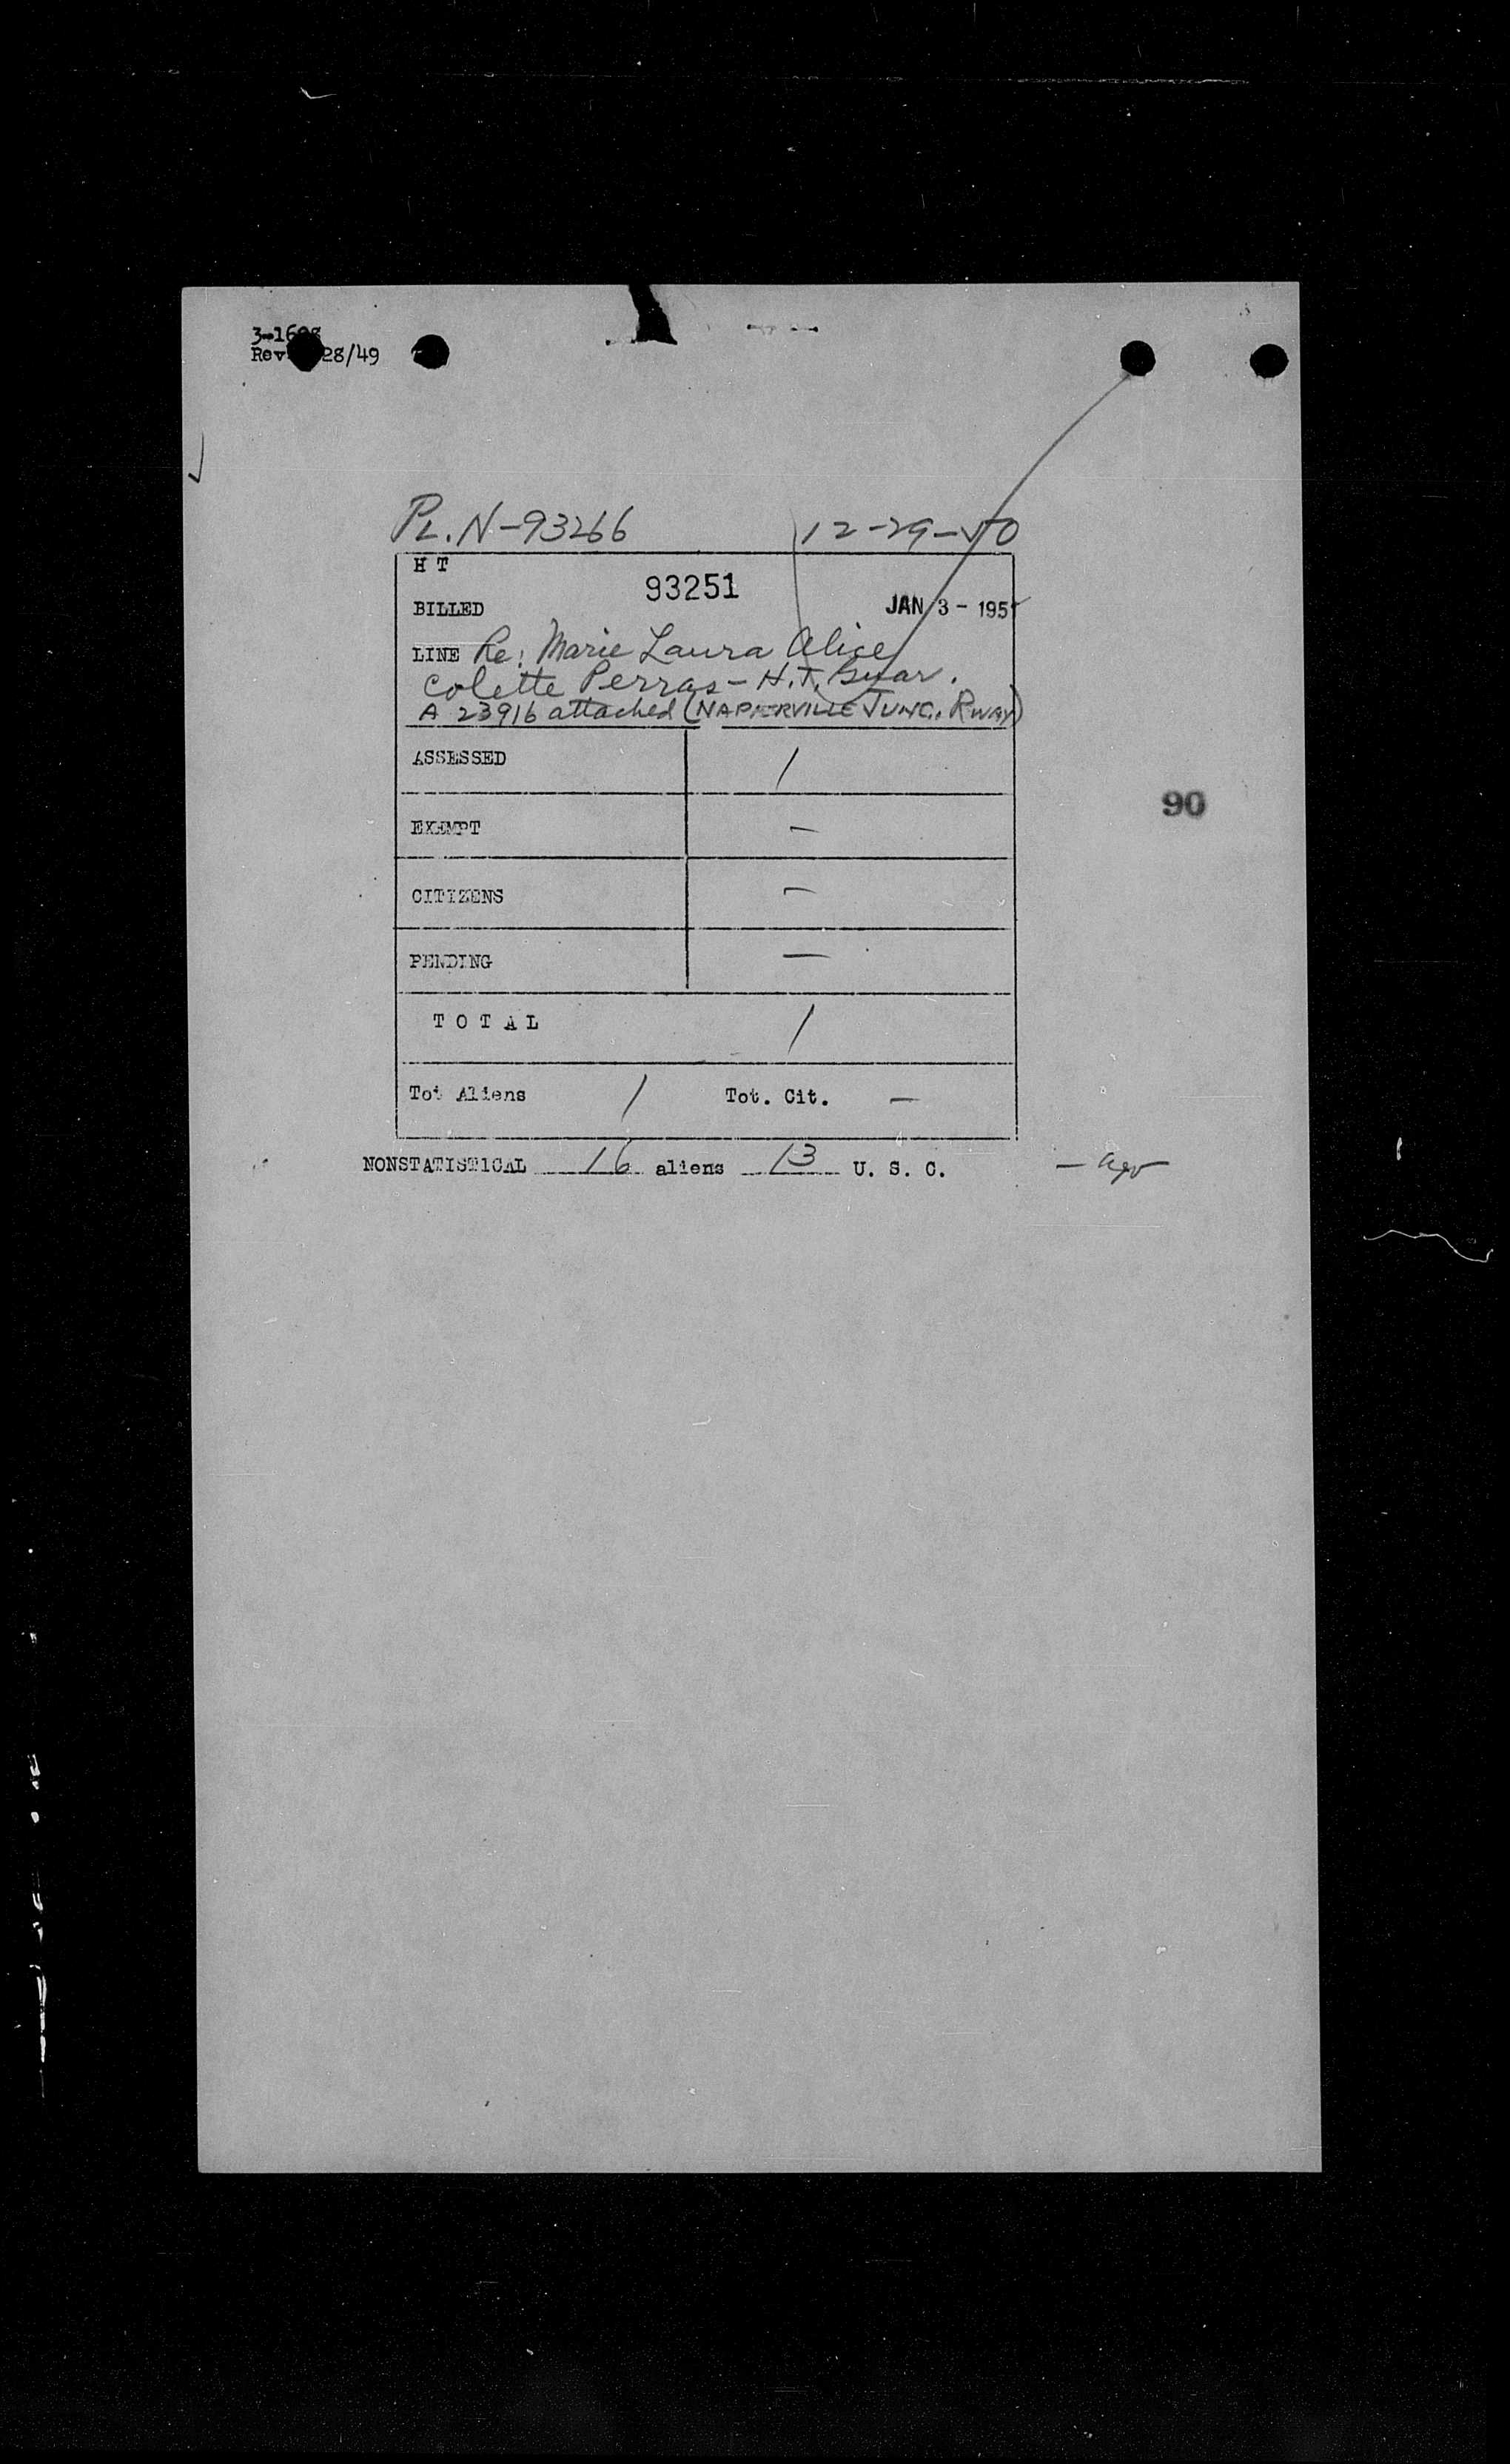 3-1698
Rev. 28/49
PL. N-93266 12-29-50
H T
93251
BILLED JAN 3 - 195
LINE Re: Marie Laura Alice
Colette Perras - H.T. Guar.
A 23916 attached (NAPIERVILLE JUNC. RWAY)
ASSESSED 1
90
EXEMPT —
CITIZENS —
PENDING —
T O T A L 1
Tot Aliens 1 Tot. Cit. —
NONSTATISTICAL 16 aliens 13 U. S. C.